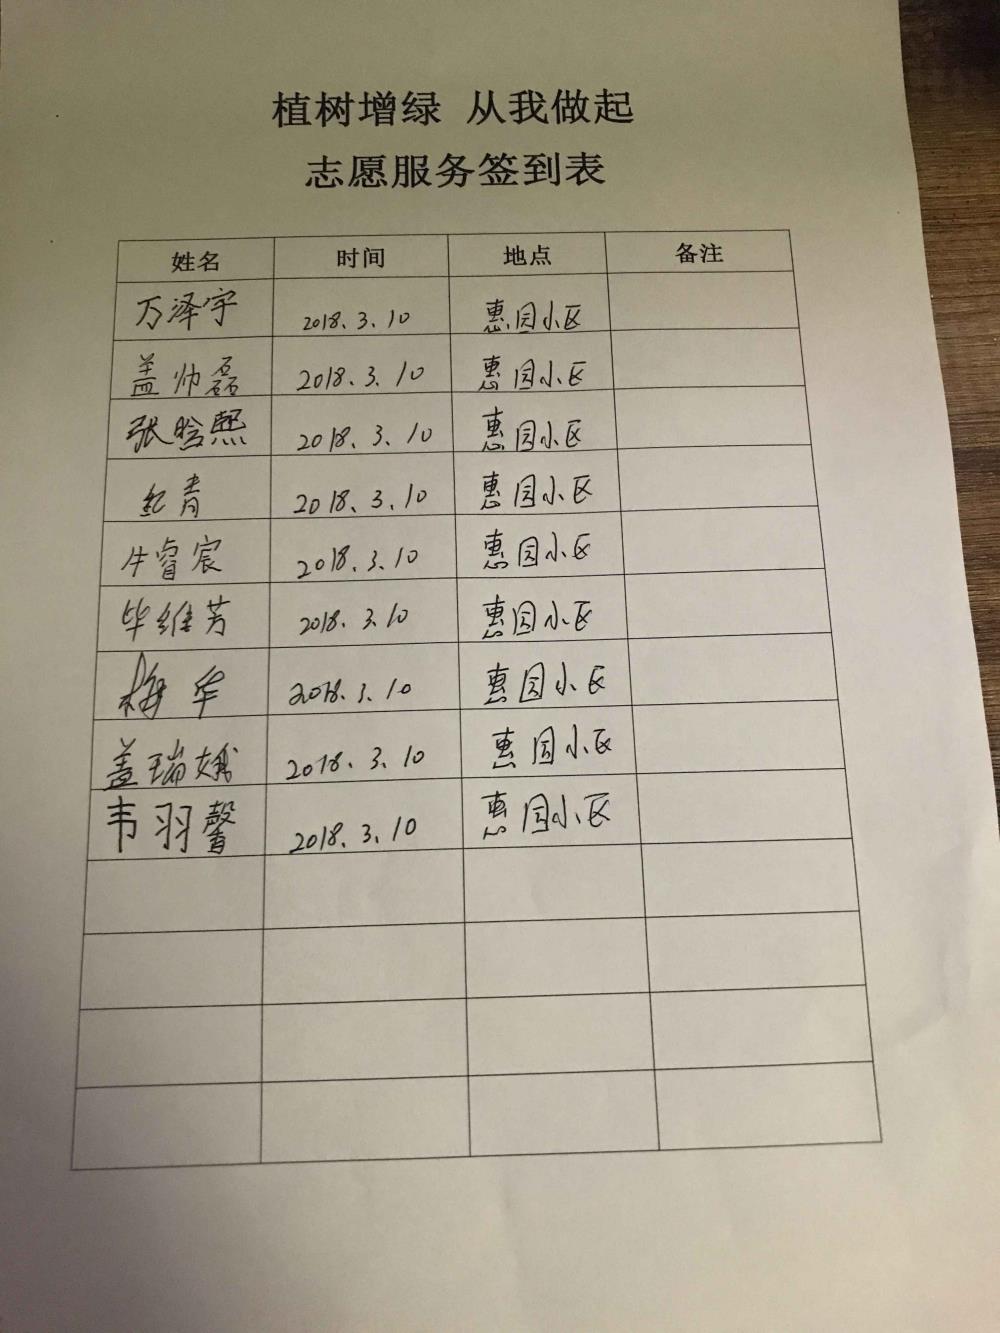 植树增绿 从我做起
志愿服务签到表
姓名 时间 地点 备注
万泽宇 2018.3.10 惠园小区
盖帅磊 2018.3.10 惠园小区
张晗熙 2018.3.10 惠园小区
纪青 2018.3.10 惠园小区
牛睿宸 2018.3.10 惠园小区
毕维芳 2018.3.10 惠园小区
梅华 2018.3.10 惠园小区
盖瑞娥 2018.3.10 惠园小区
韦羽馨 2018.3.10 惠园小区